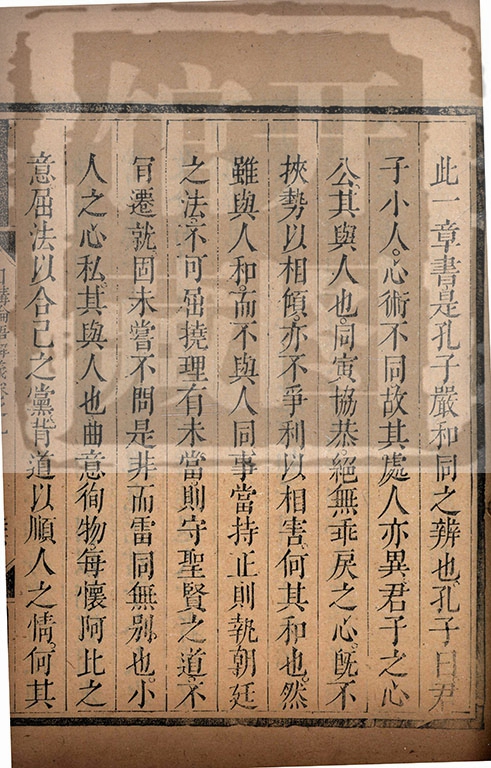 此一章書是孔子嚴和同之辨也孔子曰君
子小人心術不同故其處人亦異君子之心
公其與人也同寅協恭絕無乖戾之心既不
挾勢以相傾亦不爭利以相害何其和也然
雖與人和而不與人同事當持正則執朝廷
之法不可屈撓理有未當則守聖賢之道不
肯遷就固未嘗不問是非而雷同無别也小
人之心私其與人也曲意徇物每懷阿比之
意屈法以合己之黨背道以順人之情何其